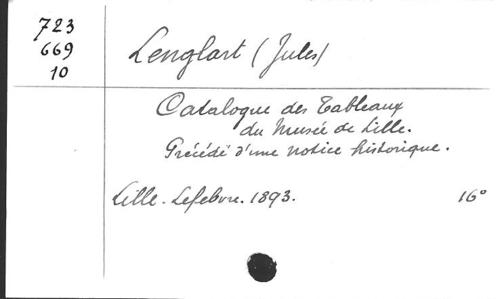 723
669
10
Lenglart (Jules)
Catalogue des Tableaux
du Musée de Lille.
Précédé d'une notice historique.
Lille. Lefebvre. 1893. 16°